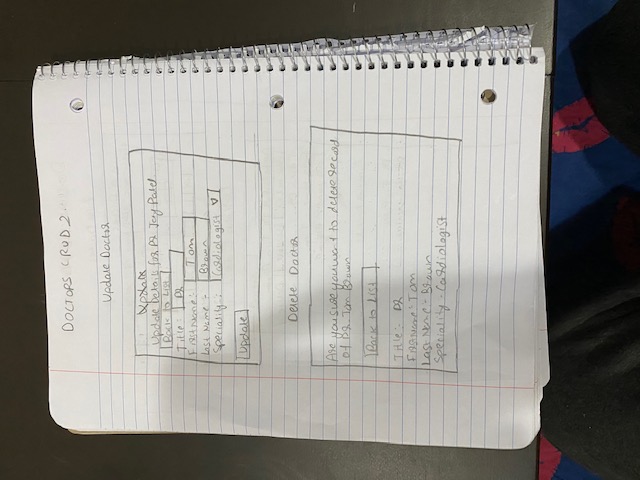 DOCTORS CRUD 2.
Update Doctor
Update Details for DR Jay Patel
Back to List
Title:- DR
FirstName:- Tom
Last Name:- Brown
Speciality:- Cardiologist
Update
Delete Doctor
Are you sure you want to delete record
of DR. Tom Brown
Back to List
Title:- DR
FirstName:- Tom
Last Name:- Brown
Speciality:- Cardiologist